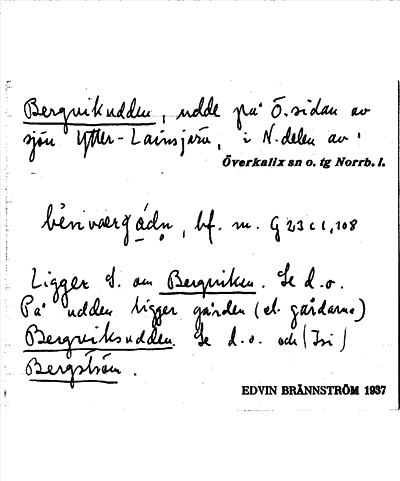 Bergvikudden, udde på Ö.sidan av
sjön Ytter-Lainsjärv, i N.delen av
Överkalix sn o. tg Norrb. l.
bf. m. G 23 c 1, 108
Ligger S. om Bergviken. Se d.o.
På udden ligger gården (el. gårdarna)
Bergviksudden. Se d.o. och (Isi)
Bergström.
EDVIN BRÄNNSTRÖM 1937